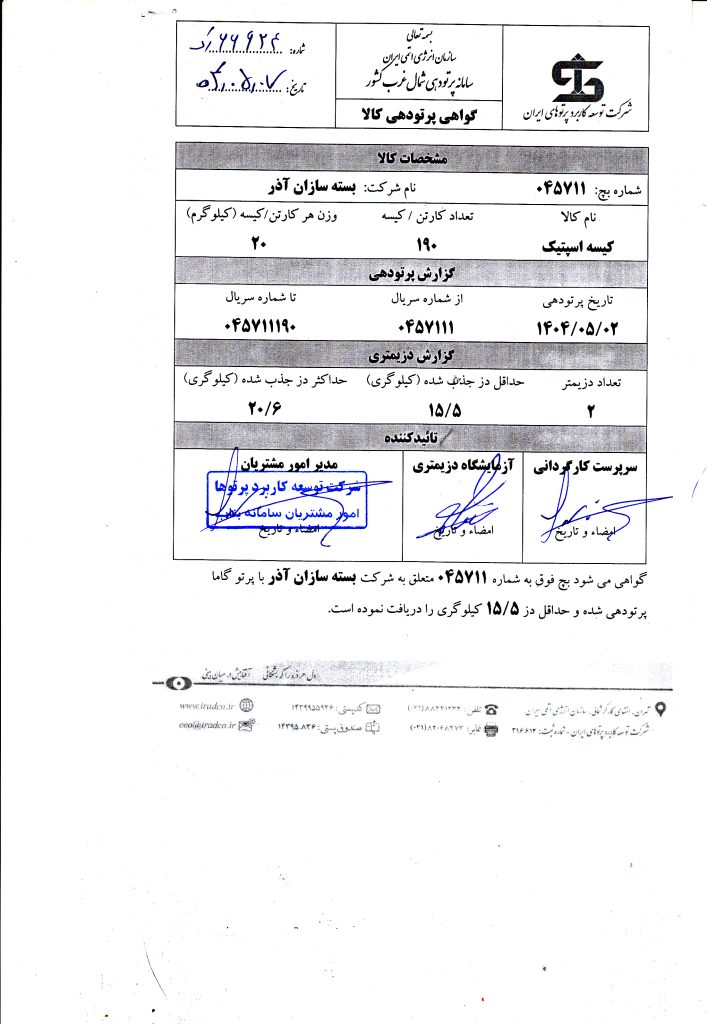 بسمه تعالی
سازمان انرژی اتمی ایران
سامانه پرتودهی شمال غرب کشور
گواهی پرتودهی کالا
شرکت توسعه کاربرد پرتوهای ایران
شماره: ۶۶۹۲۴
تاریخ:
مشخصات کالا
شماره بچ: ۰۴۵۷۱۱ نام شرکت: بسته سازان آذر
نام کالا تعداد کارتن / کیسه وزن هر کارتن/کیسه (کیلوگرم)
کیسه اسپتیک ۱۹۰ ۲۰
گزارش پرتودهی
تاریخ پرتودهی از شماره سریال تا شماره سریال
۱۴۰۴/۰۵/۰۲ ۰۴۵۷۱۱۱ ۰۴۵۷۱۱۱۹۰
گزارش دزیمتری
تعداد دزیمتر حداقل دز جذب شده (کیلوگری) حداکثر دز جذب شده (کیلوگری)
۲ ۱۵/۵ ۲۰/۶
تائیدکننده
سرپرست کارگردانی آزمایشگاه دزیمتری مدیر امور مشتریان
شرکت توسعه کاربرد پرتوها
امور مشتریان سامانه بناب
امضاء و تاریخ امضاء و تاریخ امضاء و تاریخ
گواهی می شود بچ فوق به شماره ۰۴۵۷۱۱ متعلق به شرکت بسته سازان آذر با پرتو گاما
پرتودهی شده و حداقل دز ۱۵/۵ کیلوگری را دریافت نموده است.
دل هر ذره را که بشکافی آفتابیش در میان بینی
تهران، انتهای کارگر شمالی، سازمان انرژی اتمی ایران تلفن: کدپستی: ۱۴۳۹۹۵۵۹۳۶ www.iradco.ir
شرکت توسعه کاربرد پرتوهای ایران - شماره ثبت: ۳۱۶۶۱۳ نمابر: صندوق پستی: ۱۴۳۹۵.۸۳۶ ceo@iradco.ir